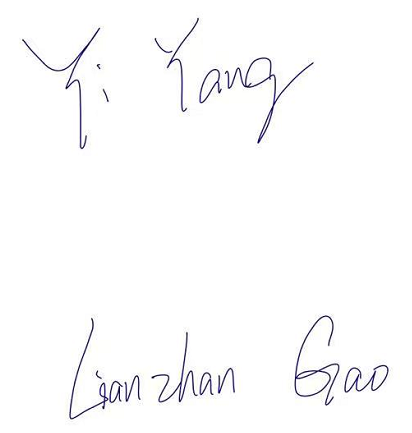 Yi Yang
Lianzhan Gao